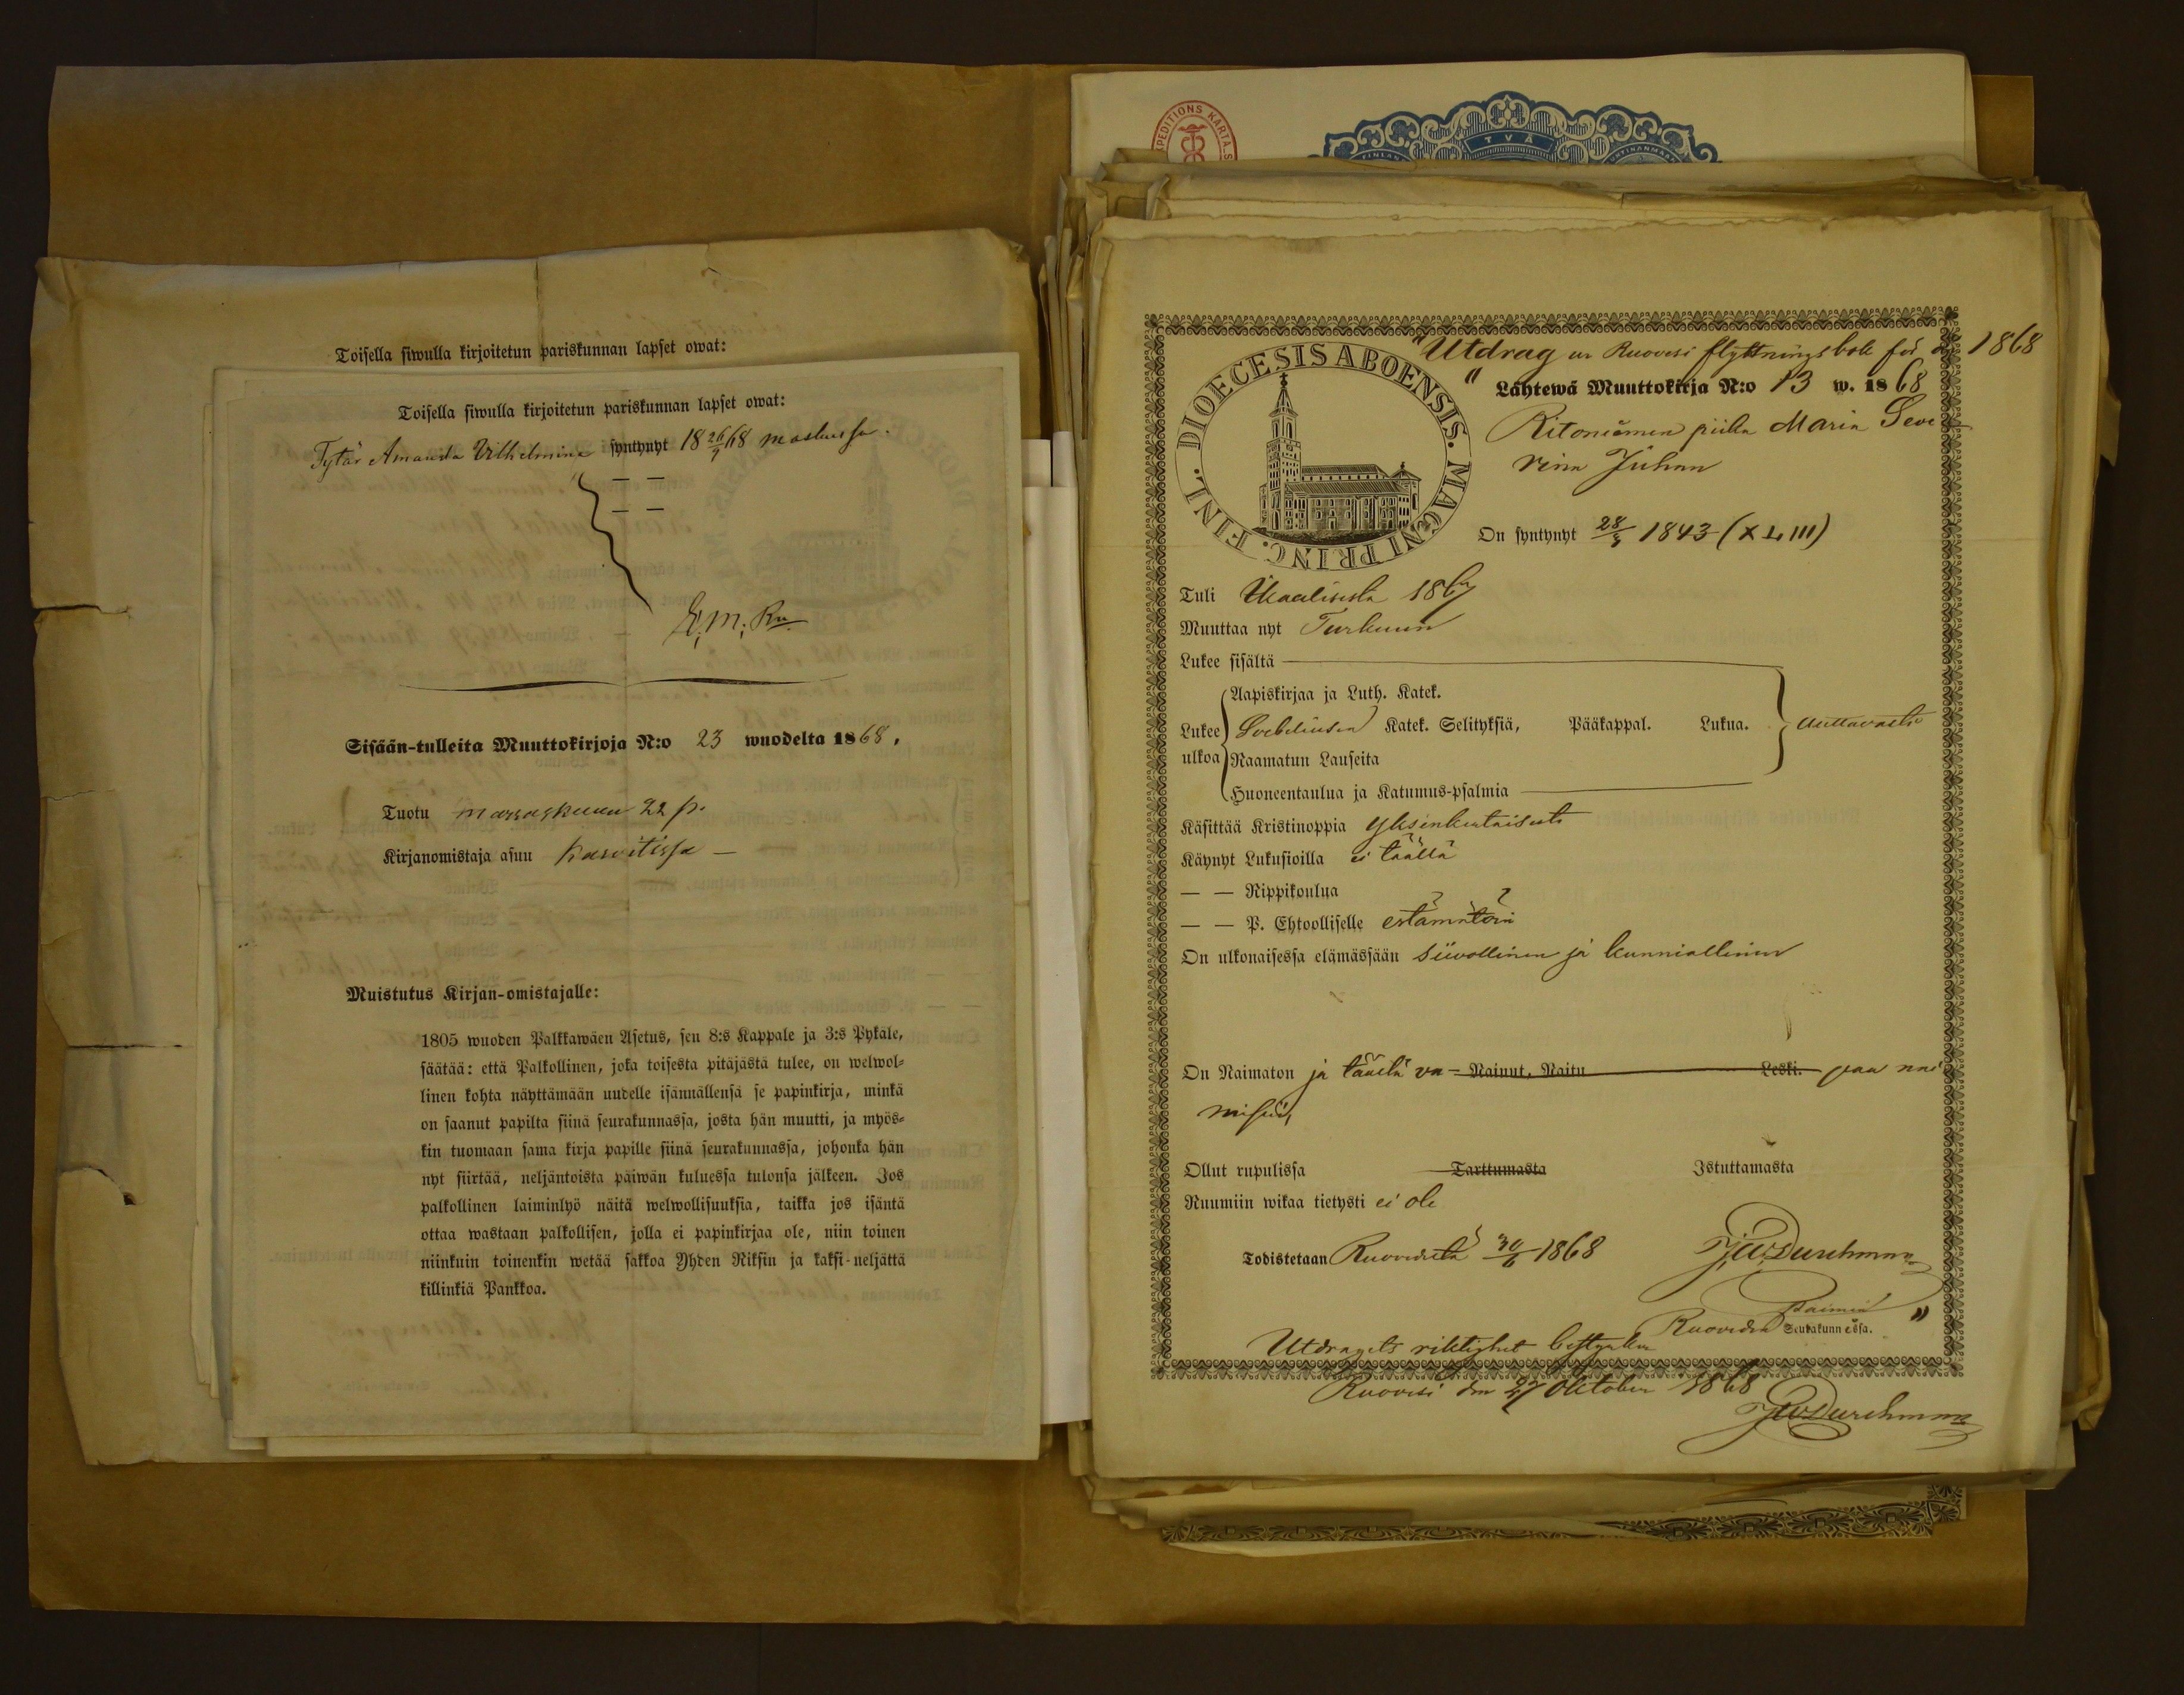 Toisella siwulla kirjoitetun pariskunnan lapset owat:
Toisella siwulla kirjoitetun pariskunnan lapset owat:
Tytär Amanda Vilhelmina syntynyt 18 26/7 68 maskussa.
— —
— —
Sisään-tulleita Muuttokirjoja N:o 23 wuodelta 1868.
Tuotu marraskuun 22 p.
Kirjanomistaja asuu
Muistutus Kirjan-omistajalle:
1805 wuoden Palkkawäen Asetus, sen 8:s Kappale ja 3:s Pykale,
säätää: että Palkollinen, joka toisesta pitäjästä tulee, on welwol-
linen kohta näyttämään uudelle isännällensä se papinkirja, minkä
on saanut papilta siinä seurakunnassa, josta hän muutti, ja myös-
kin tuomaan sama kirja papille siinä seurakunnassa, johonka hän
nyt siirtää, neljäntoista päiwän kuluessa tulonsa jälkeen. Jos
palkollinen laiminlyö näitä welwollisuuksia, taikka jos isäntä
ottaa wastaan palkollisen, jolla ei papinkirjaa ole, niin toinen
niinkuin toinenkin wetää sakkoa Yhden Riksin ja kaksi-neljättä
killinkiä Pankkoa.
PEDITIONS KARTA.S
TVÅ
"Utdrag ur Ruovesi flyttningsbok för år 1868
" Lähtewä Muuttokirja N:o 13 w. 1868
DIOECESIS ABOENSIS. MAGNI PRINC. FINL.
Ritoniemen piika Maria Seve
riina Juhan
On syntynyt 28/3 1843 (XLIII)
Tuli Ikaalisista 1867
Muuttaa nyt Turkuun
Lukee sisältä
Aapiskirjaa ja Luth. Katek.
Lukee ulkoa Svebeliusen Katek. Selityksiä, Pääkappal. Lukua. auttavasti
Raamatun Lauseita
Huoneentaulua ja Katumus-psalmia
Käsittää Kristinoppia yksinkertaisesti
Käynyt Lukusioilla ei täällä
— — Rippikoulua
— — P. Ehtoolliselle estämätöin
On ulkonaisessa elämässään siivollinen ja kunniallinen
On Naimaton ja täältä va- Nainut, Naitu Leski. paa nai
misiin,
Ollut rupulissa Tarttumasta Istuttamasta
Ruumiin wikaa tietysti ei ole
Todistetaan Ruovedellä 30/6 1868
Ruoveden Seurakunnassa. "
Utdragets riktighet bestyrker
Ruovesi den 27 Oktober 1868